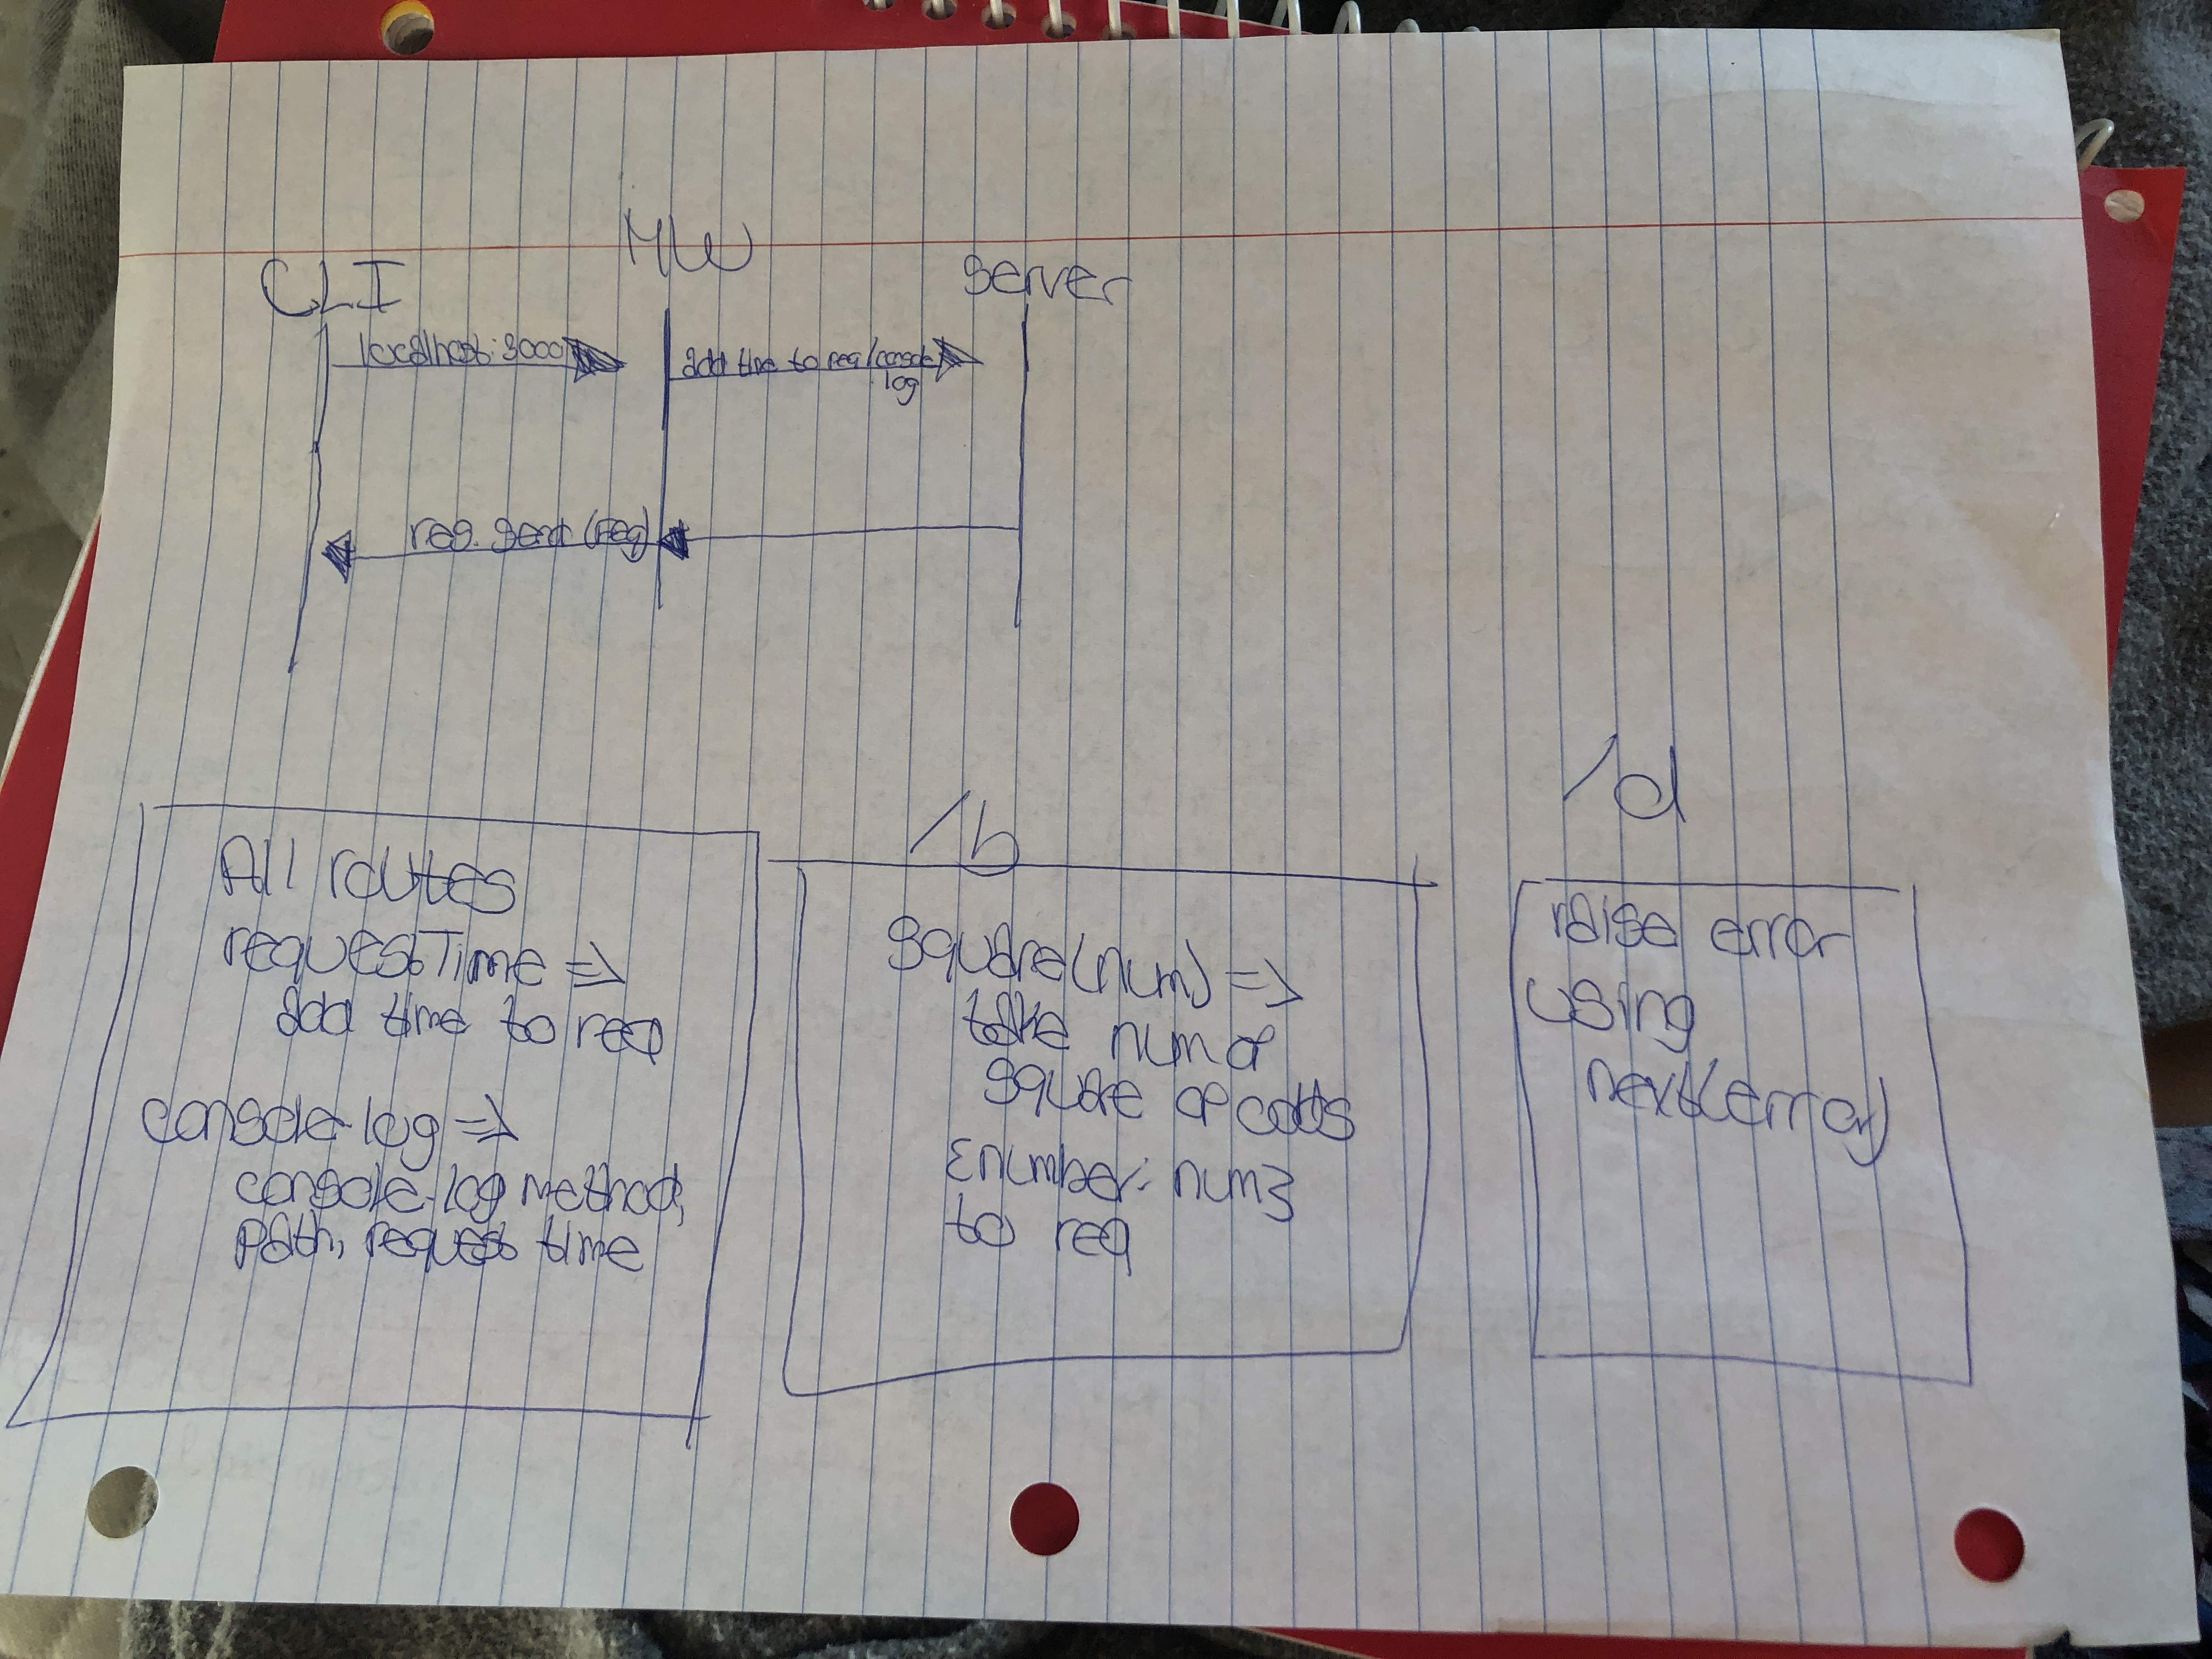 CLI MW server
localhost: 3000
add time to req/console
log
res.send(req)
All routes
requestTime =>
add time to req
console-log =>
console-log method,
path, request time
/b
square(num) =>
take num &
square & adds
{number: num}
to req
/d
raise error
using
next(error)